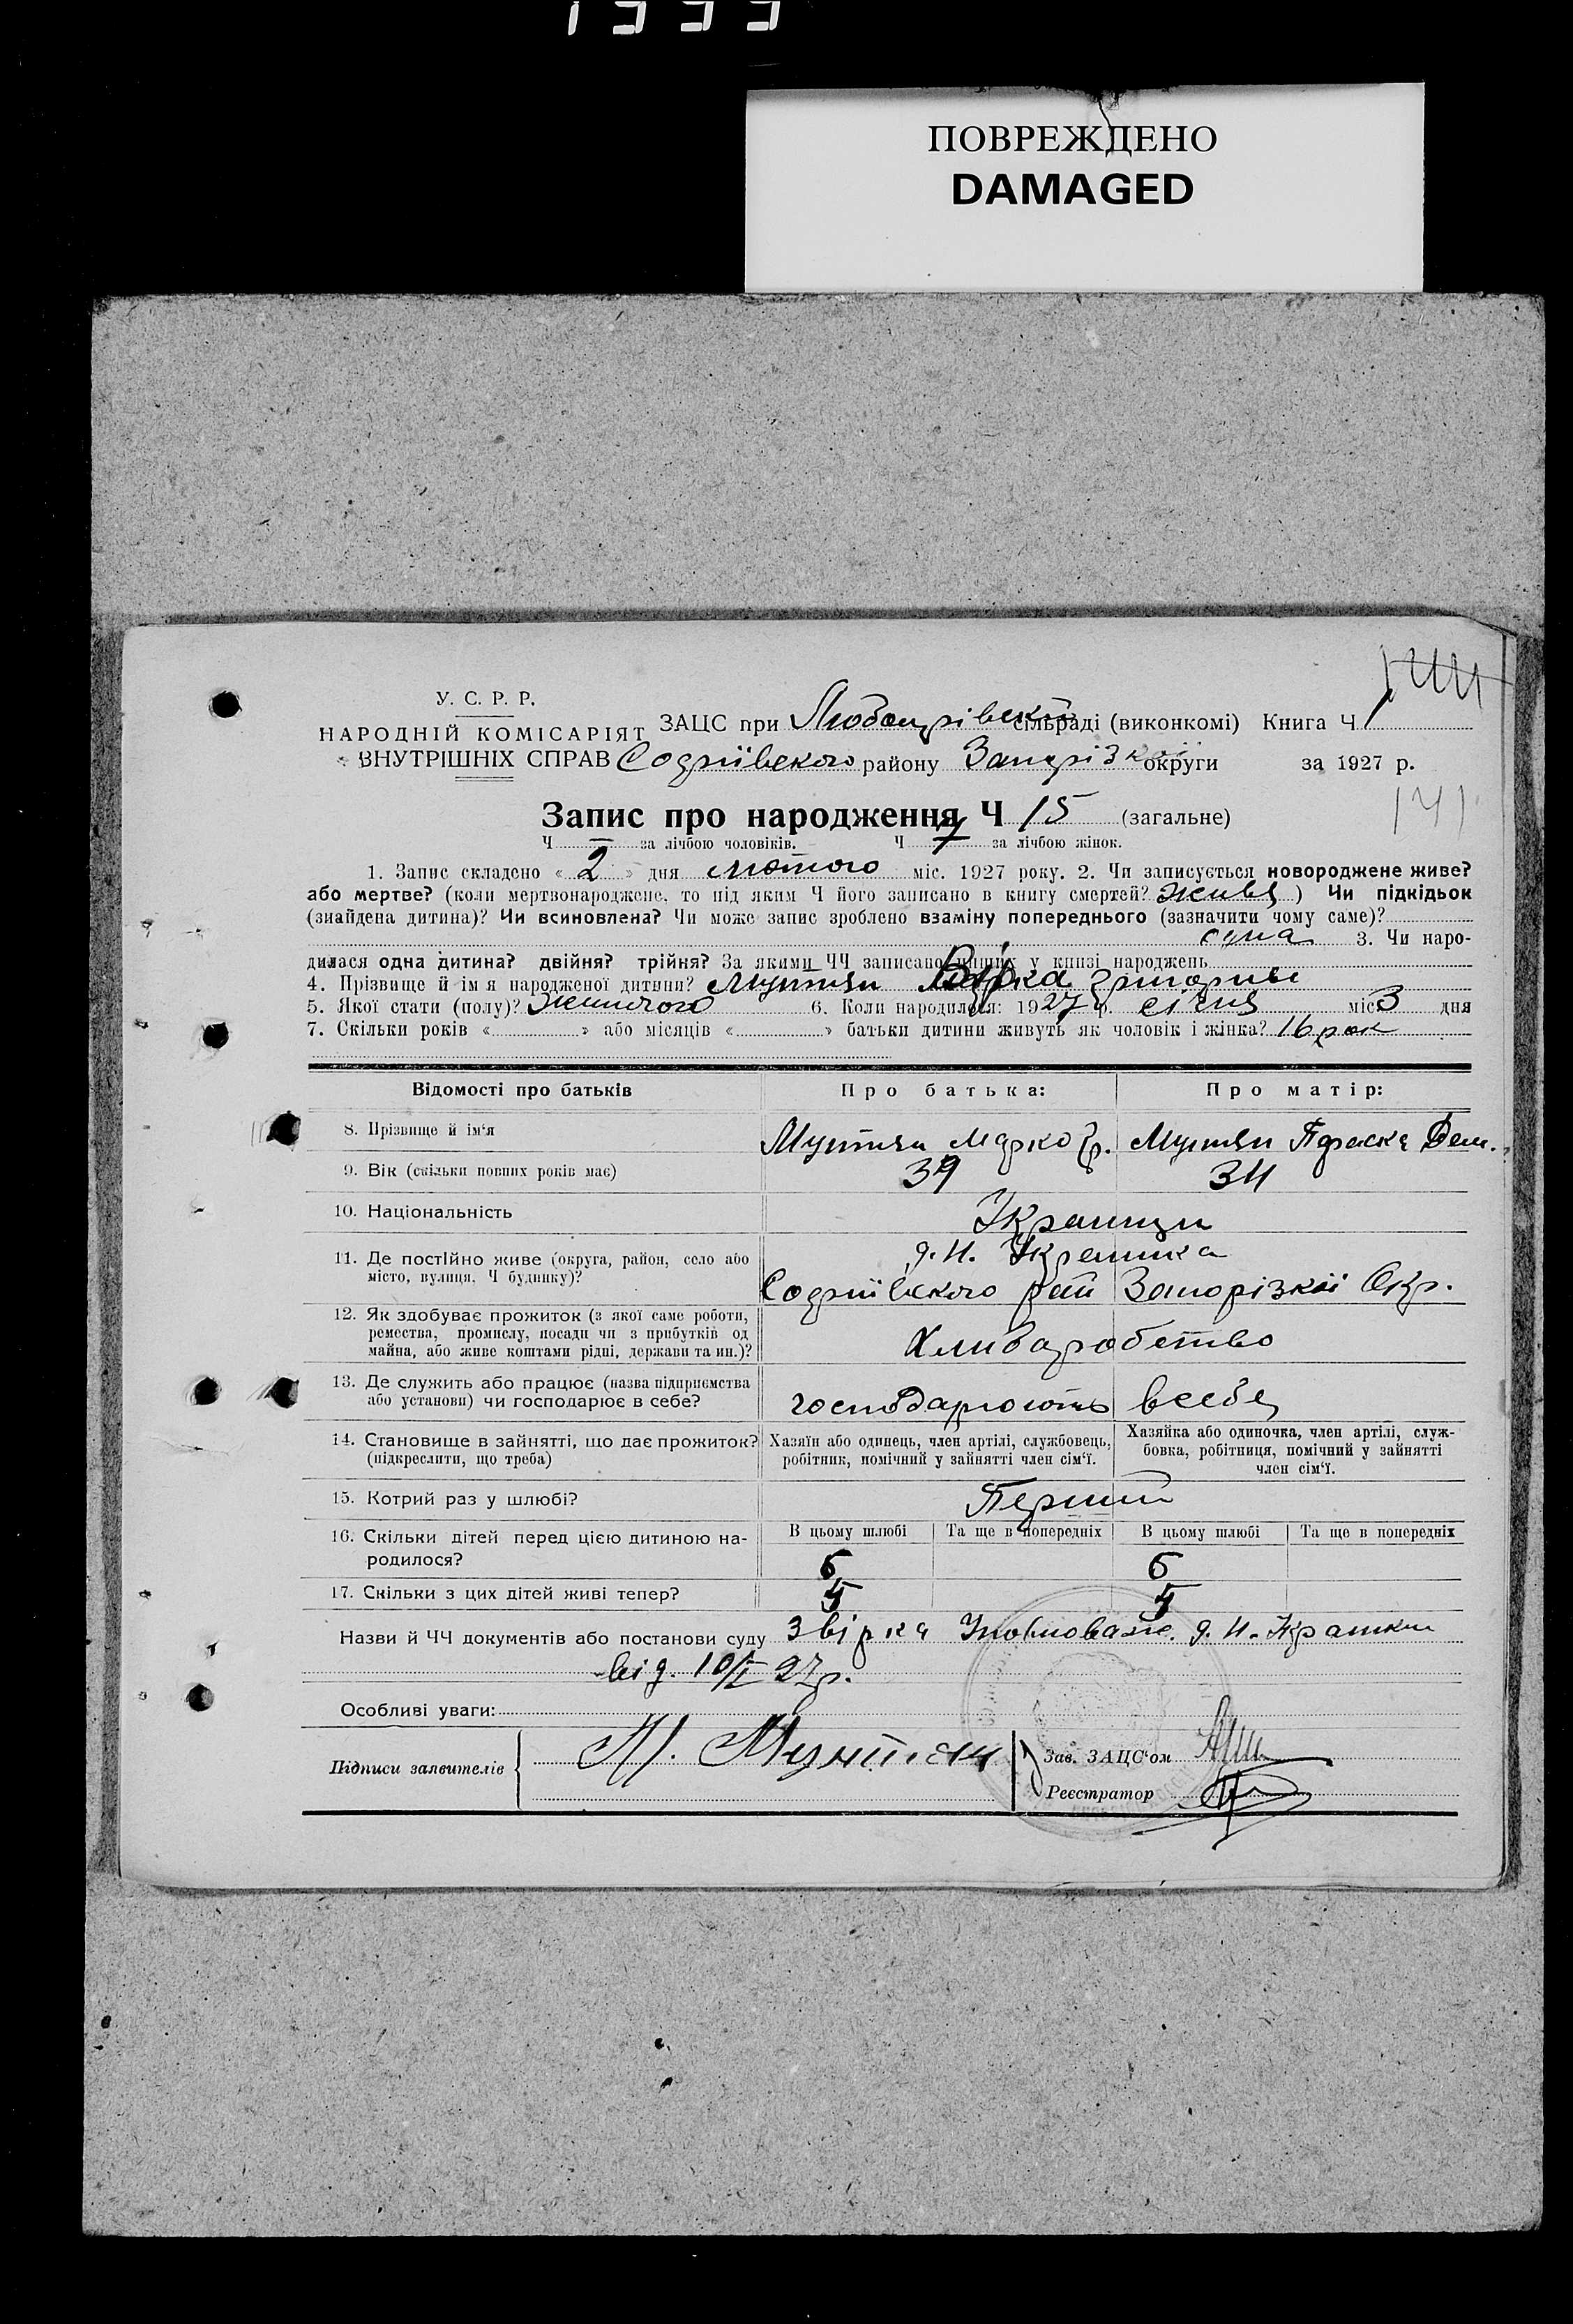 1999
ПОВРЕЖДЕНО
DAMAGED
У. С. Р. Р.
НАРОДНІЙ КОМІСАРІЯТ
ВНУТРІШНІХ СПРАВ
ЗАЦС при сільраді (виконкомі) Книга Ч 1
району Запорізької округи за 1927 р.
141
Запис про народження Ч 15 (загальне)
Ч — за лічбою чоловіків. Ч 7 за лічбою жінок.
1. Запис складено « 2 » дня лютого міс. 1927 року. 2. Чи записується новороджене живе?
або мертве? (коли мертвонароджене, то під яким Ч його записано в книгу смертей? живе) Чи підкідьок
(знайдена дитина)? Чи всиновлена? Чи може запис зроблено взаміну попереднього (зазначити чому саме)?
одна 3. Чи наро-
дилася одна дитина? двійня? трійня? За якими ЧЧ записано инших у книзі народжень
4. Прізвище й ім'я народженої дитини? Мунтян
5. Якої стати (полу)? жіночого 6. Коли народилося: 1927 р. січня міс 3 дня
7. Скільки років « » або місяців « » батьки дитини живуть як чоловік і жінка? 16 рок
Відомості про батьків
Про батька:
Про матір:
8. Прізвище й ім'я
Мунтян Марко Гр.
Мунтян Параска Дем.
9. Вік (скільки повних років має)
39
34
10. Національність
Українци
11. Де постійно живе (округа, район, село або
місто, вулиця, Ч будинку)?
рай Запорізкої Окр.
12. Як здобуває прожиток (з якої саме роботи,
ремества, промислу, посади чи з прибутків од
майна, або живе коштами рідні, держави та ин.)?
Хлиборобство
13. Де служить або працює (назва підприємства
або установи) чи господарює в себе?
господарюють всебе
14. Становище в зайнятті, що дає прожиток?
(підкреслити, що треба)
Хазяїн або одинець, член артілі, службовець,
робітник, помічний у зайнятті член сім'ї.
Хазяйка або одиночка, член артілі, служ-
бовка, робітниця, помічний у зайнятті
член сім'ї.
15. Котрий раз у шлюбі?
Перший
16. Скільки дітей перед цією дитиною на-
родилося?
В цьому шлюбі
Та ще в попередніх
В цьому шлюбі
Та ще в попередніх
6
6
17. Скільки з цих дітей живі тепер?
Назви й ЧЧ документів або постанови суду
від. 10/I 27 р.
Особливі уваги:
Підписи заявителів
М. Мунтян
Зав. ЗАЦС'ом
Реєстратор